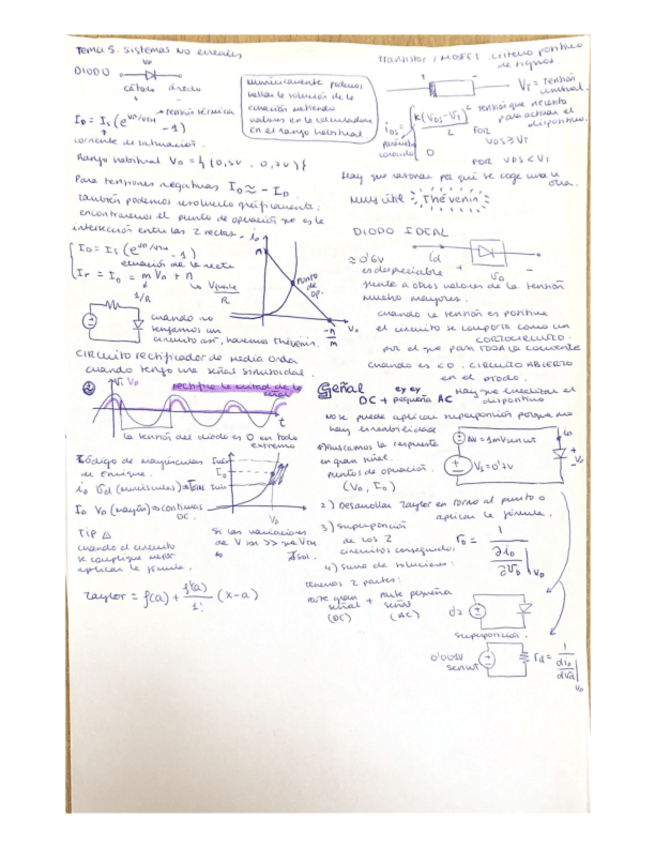 Tema 5. Sistemas no lineales
DIODO
VD
cátodo directo
ID = IS (e^VD/VTH - 1)
→ tensión térmica
corriente de saturación.
Rango habitual VD = { (0,5V, 0,7V) }
Numéricamente podemos
hallar la solución de la
ecuación metiendo
valores en la calculadora
en el rango habitual.
Para tensiones negativas ID ≈ - I
También podemos resolverlo gráficamente:
encontraremos el punto de operación que es la
intersección entre las 2 rectas.
ID = IS (e^VD/VTH - 1)
ecuación de la recta
Ir = ID = m VD + n
1/R
R
iD
n
PUNTO
DE
OP.
-n/m
VD
cuando no
tengamos un
circuito así, hacemos Thévenin.
CIRCUITO rectificador de media onda
cuando tengo una señal sinusoidal.
rectifica la mitad de la
señal
t
la tensión del diodo es 0 en todo
extremo
Código de mayúsculas
(minúsculas) ⇒ Total
(mayús) ⇒ continuas
DC.
VD
TIP △
cuando el circuito
se complique mejor
aplicar la fórmula.
Si las variaciones
de V son >> que VTH
Taylor = f(a) + f'(a)/1! (x-a)
Transistor MOSFET. criterio positivo
de signos.
+ -
VT = Tensión
umbral.
iDS =
K(VDS-VT)²/2
tensión que necesito
para activar el
dispositivo.
POR
VDS ≥ VT
0
POR VDS < VT
parámetro
conocido
Hay que razonar por qué se coge una u
otra.
Muy útil Thévenin
DIODO IDEAL
≈ 0'6V
id
+ vD -
es despreciable
frente a otros valores de la tensión
mucho mayores.
cuando la tensión es positiva
el circuito se comporta como un
CORTOCIRCUITO.
por el que pasa TODA la corriente
cuando es < 0. CIRCUITO ABIERTO
en el diodo.
Señal
DC + pequeña AC
Hay que linealizar el
dispositivo
No se puede aplicar superposición porque no
hay linealidad
1) Buscamos la respuesta
en gran señal.
Puntos de operación.
(VD, ID)
ΔV = 1mV senωt
VS = 0'7V
iD
+
VD
-
2) Desarrollar Taylor en torno al punto o
aplicar la fórmula.
3) Superposición
de los 2
circuitos conseguidos
rD = 1 / ∂iD/∂vD |VD
4) Suma de soluciones:
tenemos 2 partes:
parte gran + parte pequeña
señal señal
(DC) (AC)
superposición.
0'001V
senωt
rd = 1 / diD/dvd |VD